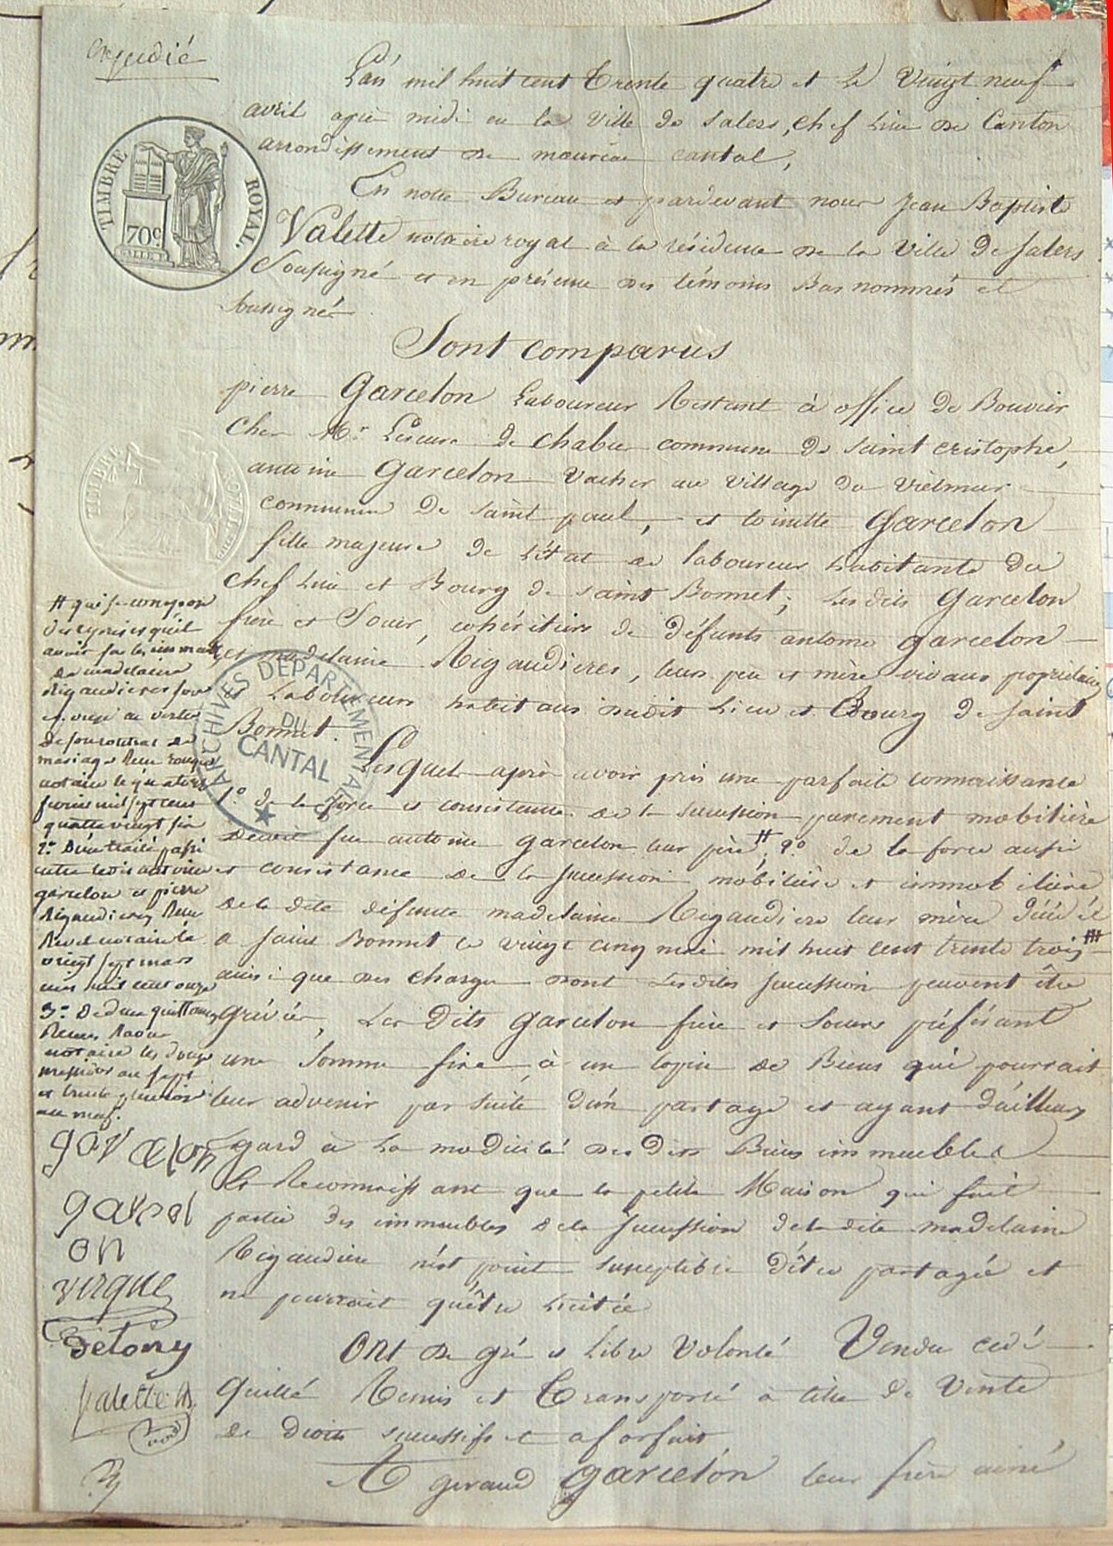 Expédié
L'an mil huit cent Trente quatre et Le Vingt neuf
avril après midi en la Ville de Salers, Chef Lieu de Canton
arrondissement de mauriac cantal,
TIMBRE ROYAL.
70c
En notre Bureau et pardevant nous Jean Baptiste
Valette notaire royal à la résidence de la Ville de Salers
Soussigné et en présence des témoins Bas nommés et
Soussignés
Sont comparus
pierre Garcelon Laboureur Restant à office de Bouvier
Chez Mr. Lescure de chabu commune de saint cristophe,
antoine Garcelon Vacher au Village de Vielmur
commune de saint paul, et toinette Garcelon
fille majeure de L'état de laboureur habitante du
chef Lieu et Bourg de saint Bonnet; Lesdits Garcelon
frère et Soeur, cohéritiers de défunts antoine garcelon
et madelaine Rigaudieres, leurs père et mère vivans propriétaires
et Laboureurs habitans dudit Lieu et Bourg de Saint
Bonnet.
ARCHIVES DÉPARTEMENTALES
DU
CANTAL
Lesquels après avoir pris une parfaite connaissance
1o. de la force et consistance de la succession purement mobilière
dudit feu antoine garcelon leur père #, 2o. de la force aussi
et consistance de la succession mobilière et immobilière
de la dite défunte madelaine Rigaudiere leur mère décédée
a saint Bonnet le vingt cinq mai mil huit cent trente trois ##
ainsi que des charges dont Lesdites succession peuvent être
grévées, Les Dits garcelon frère et Soeurs préférant
une Somme fixe à un lopin de Biens qui pourrait
leur advenir par suite d'un partage et ayant d'ailleurs
Egard à La modicité desdits Biens immeubles
Et Reconnaissant que la petite Maison qui fait
partie des immeubles de la succession de la dite madelaine
Rigaudiere n'est point susceptible d'être partagée et
ne pourrait qu'être licitée
Ont de gré et Libre Volonté Vendu cédé
Quitté Remis et Transporté a titre de Vente
de droits successifs et a forfait
A geraud garcelon leur frère ainé
# qui se compose
des reprises qu'il
avait sur les immeubles
de madelaine
Rigaudieres son
épouse en vertu
de son contrat de
mariage Reçu
notaire le quatorze
février mil sept cent
quatre vingt six
2o. D'un traité passé
entre ledit antoine
garcelon et pierre
Rigaudieres Reçu
Revel notaire le
vingt sept mars
mil huit cent onze
3o. De deux quittances
Reçues Raoux
notaire les douze
messidor an sept
et trente pluviose
an neuf.
garcelon
garcel
on
virque
Detony
Valette